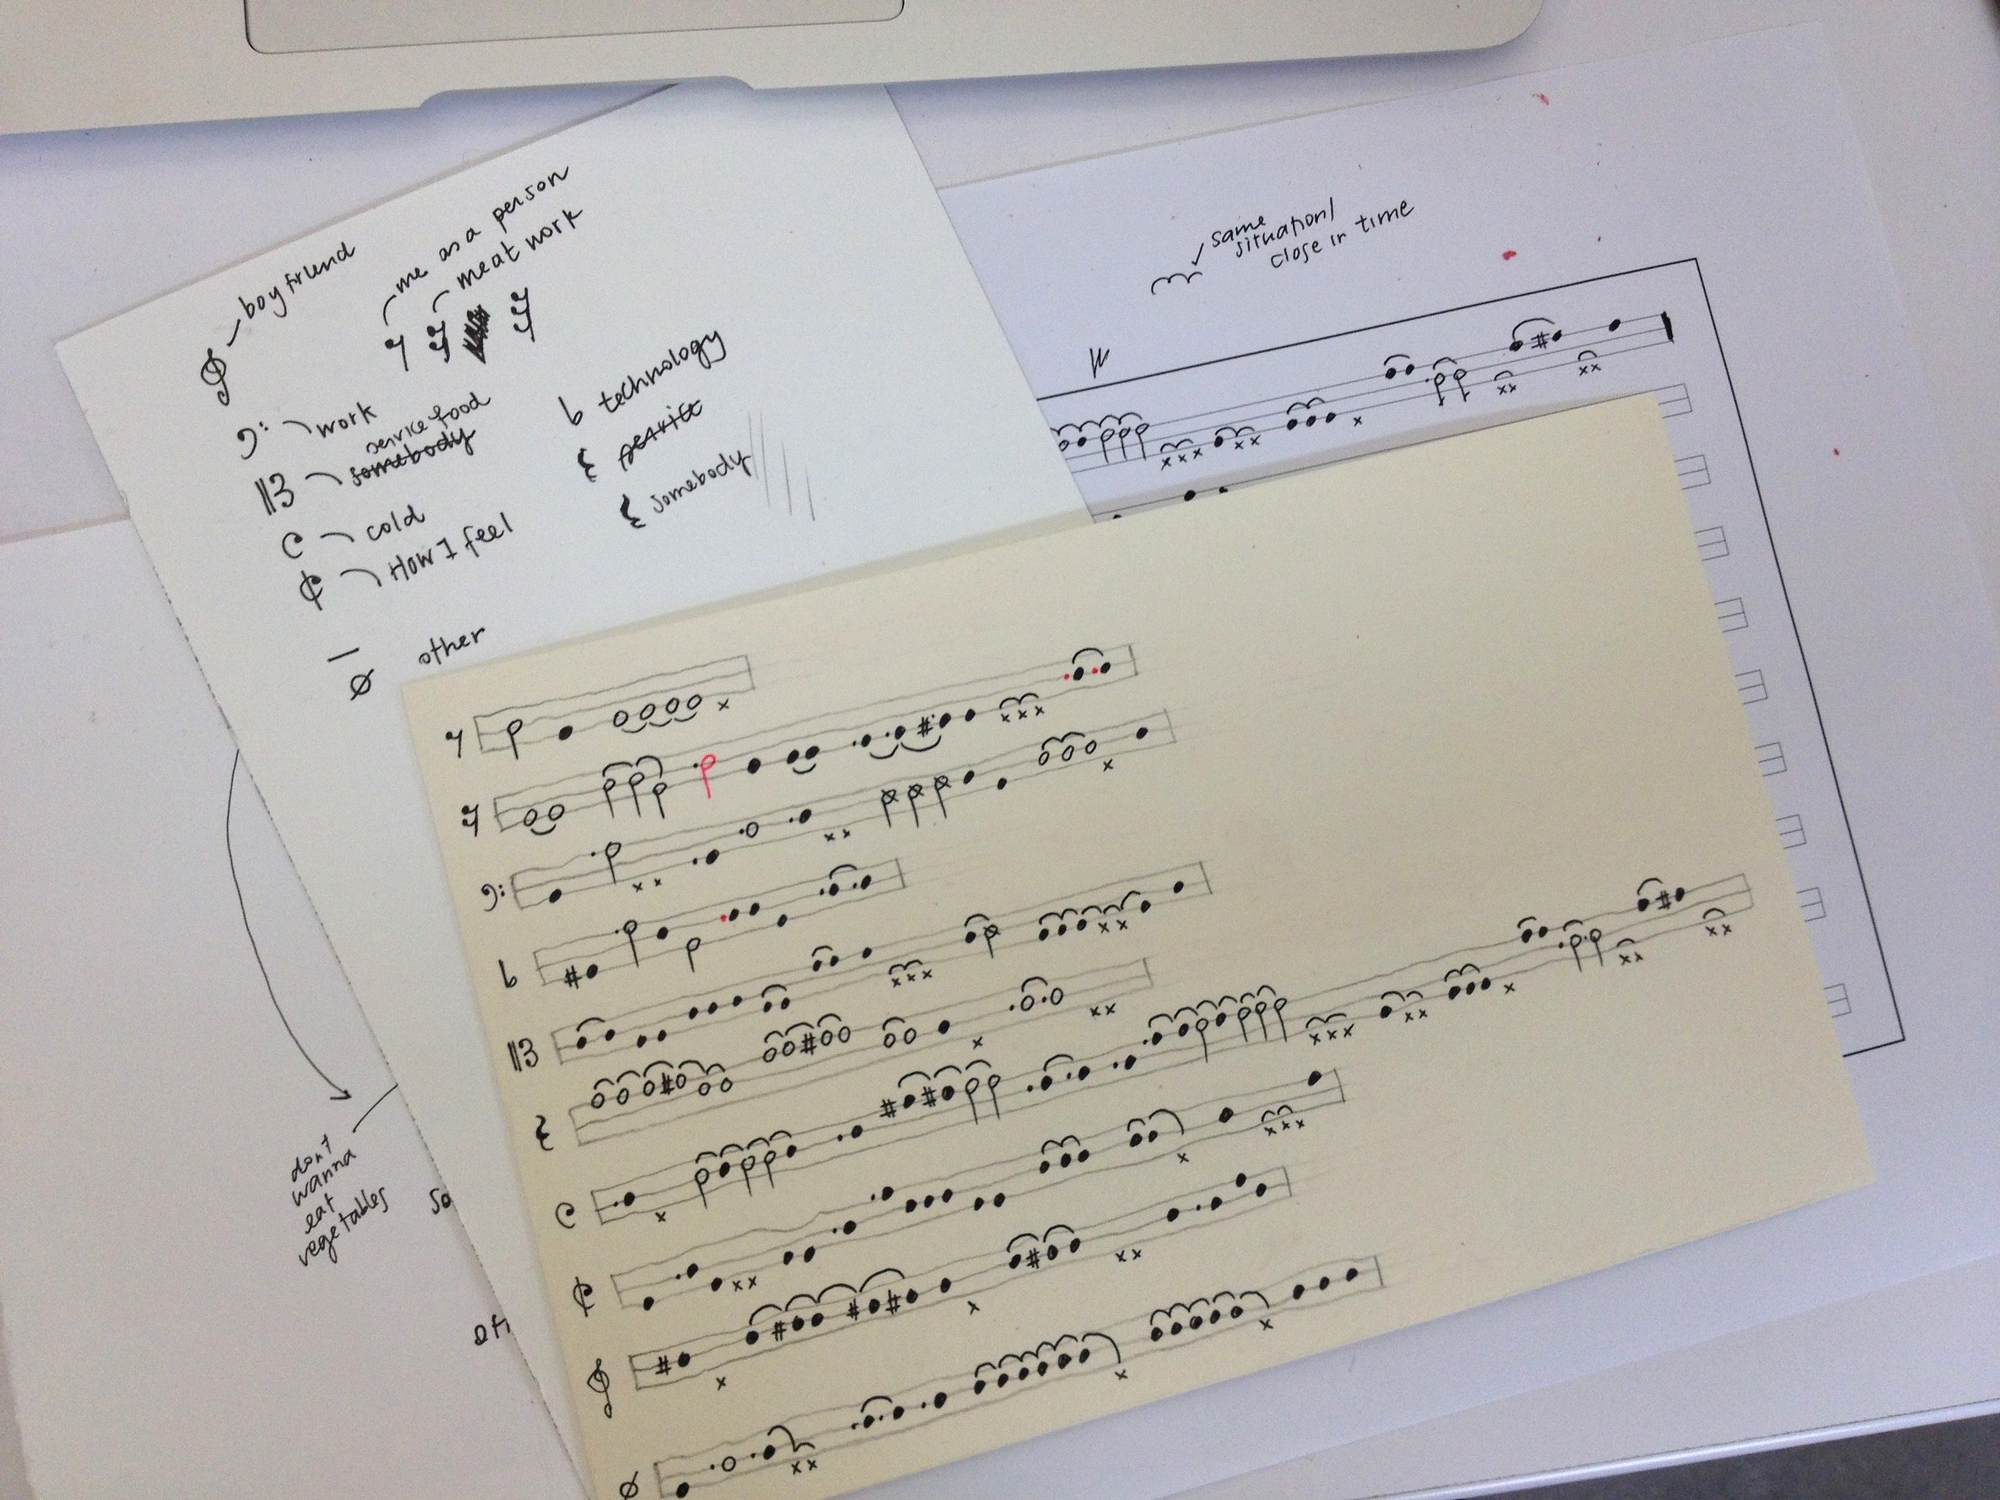 boyfriend
me as a person
meat work
work
service food
somebody
cold
How I feel
other
technology
service
somebody
same
situation/
close in time
don't
wanna
eat
vegetables
so